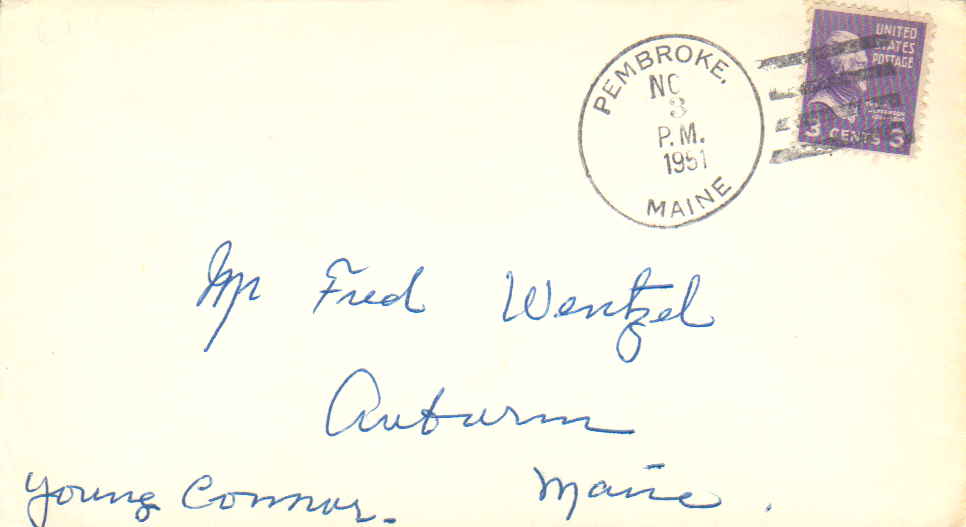 PEMBROKE,
3
P.M.
1951
MAINE
UNITED
STATES
POSTAGE
3 CENTS 3
Mr Fred Wentzel
Auburn
Young Connor. Maine.